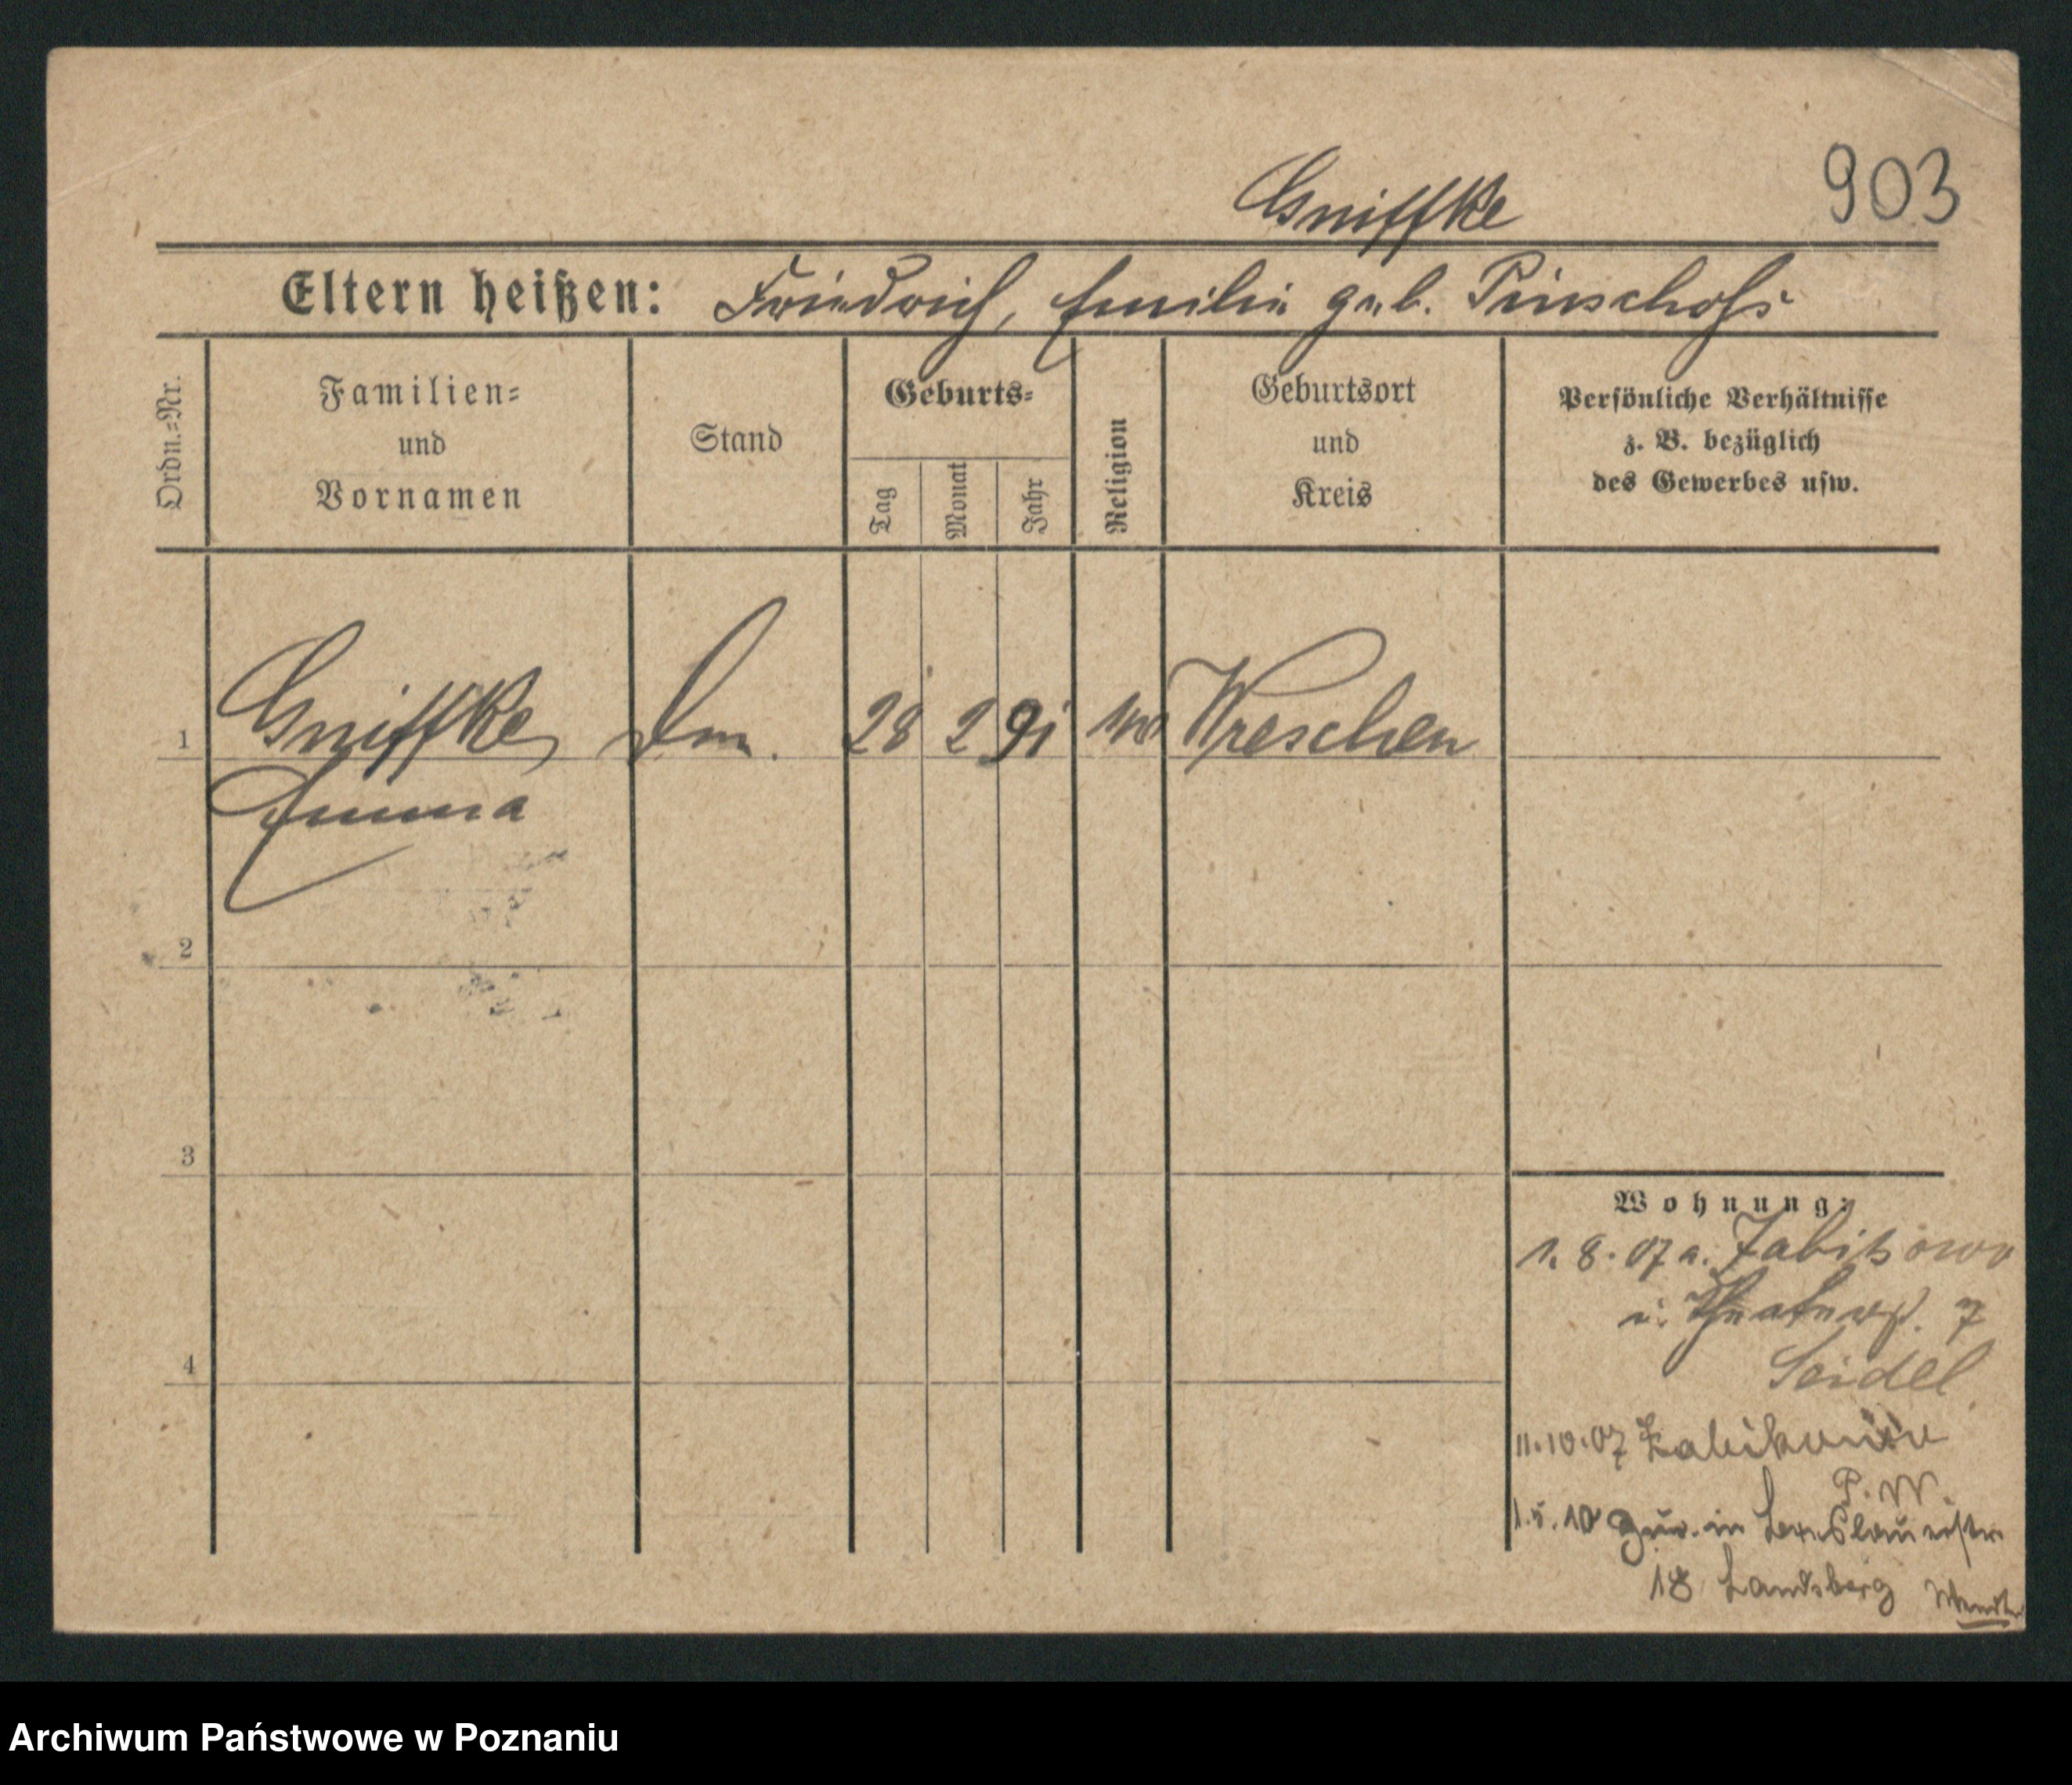 Gniffke 903
Eltern heißen: Friedrich, Emilie geb. Pinschofs
Ordn.-Nr.
Familien-
und
Vornamen
Stand
Geburts-
Tag
Monat
Jahr
Religion
Geburtsort
und
Kreis
Persönliche Verhältnisse
z. B. bezüglich
des Gewerbes usw.
1 Gniffke 28 2 91 Wreschen
Emma
2
3
4
Wohnung:
1. 8. 07 a. Zabikowo
n. Theaterstr. 7
Seidel
11.10.07 Zabikowo
P. W.
1.5.10 zur. in
18 Landsberg
Archiwum Państwowe w Poznaniu